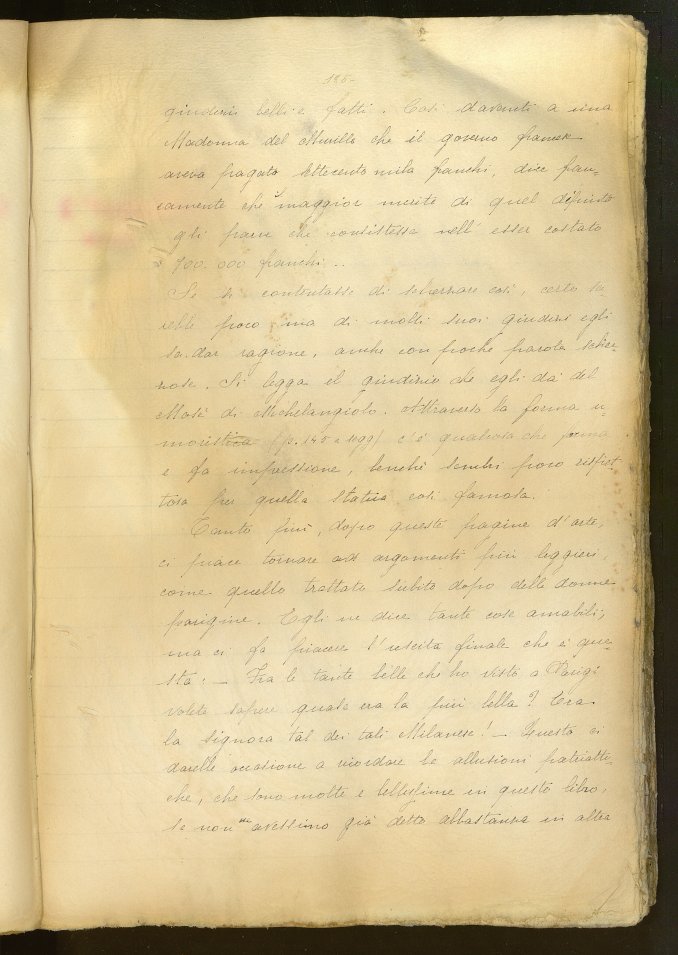 185-
giudizii belli e fatti. Così davanti a una
Madonna del Murillo che il governo francese
aveva pagato settecento mila franchi, dice fran-
camente che il maggior merito di quel dipinto
gli pare che consistesse nell'esser costato
700.000 franchi...
Se si contentasse di scherzare così, certo sa
rebbe poco ma di molti suoi giudizi egli
sa dar ragione, anche con poche parole scher-
zose. Si legga il giudizio che egli dà del
Mosè di Michelangiolo. Attraverso la forma u-
moristica (p. 148 e 1099) c'è qualcosa che
e fa impressione, benchè sembri poco rispet-
tosa per quella statua così famosa.
Tanto più, dopo queste pagine d'arte,
ci piace tornare ad argomenti più leggieri,
come quello trattato subito dopo delle donne
parigine. Egli ne dice tante cose amabili;
ma ci fa piacere l'uscita finale che è que-
sta: - Fra le tante belle che ho visto a Parigi
volete sapere quale era la più bella? Era
la signora tal dei tali Milanese! - Questo ci
darebbe occasione a ricordare le allusioni patriotti-
che, che sono molte e bellissime in questo libro,
se non ne avessimo già detto abbastanza in altra